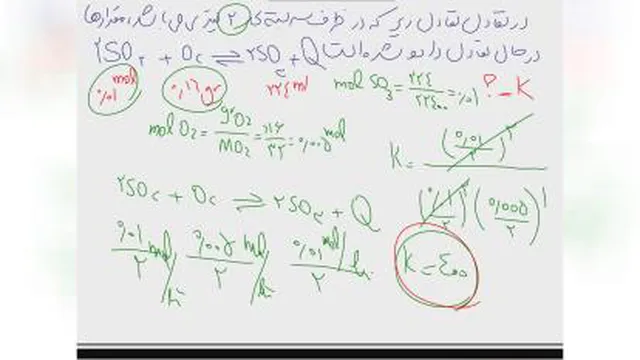 در تعادل تعادل زیر که در ظرف سر بسته ی ۲ لیتری می باشد، مقدارها
در حال تعادل داده شده است 2SO₂ + O₂ ⇌ 2SO₃ + Q
۰٫۰۱ mol ۰٫۱۶ gr ۲۲۴ ml mol SO₃ = ۲۲۴/۲۲۴۰۰ = ۰٫۰۱ ? = K
mol O₂ = gr O₂/MO₂ = ۰٫۱۶/۳۲ = ۰٫۰۰۵ mol
K = (۰٫۰۱/۲)² / (۰٫۰۱/۲)² (۰٫۰۰۵/۲)¹
۲SO₂ + O₂ ⇌ ۲SO₃ + Q
۰٫۰۱ mol/۲ lit ۰٫۰۰۵ mol/۲ lit ۰٫۰۱ mol/۲ lit
K = ۴۰۰